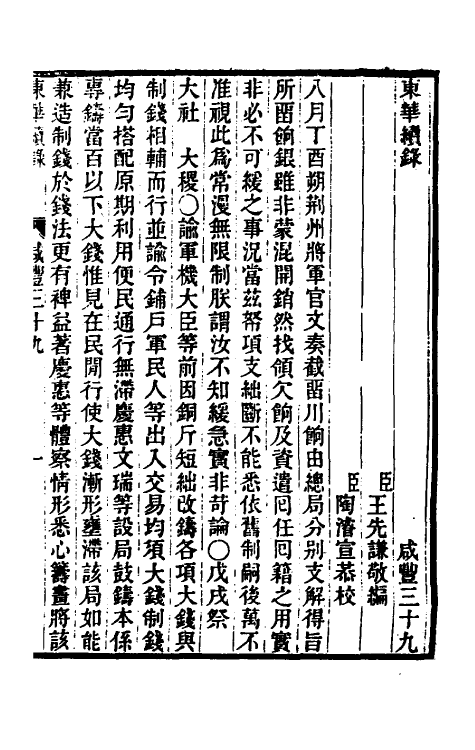 東華續錄　咸豐三十九
臣王先謙敬編
臣陶濬宣恭校
八月丁酉朔荊州將軍官文奏截畱川餉由總局分別支解得旨
所畱餉銀雖非蒙混開銷然找領欠餉及資遣囘任囘籍之用實
非必不可緩之事況當茲帑項支絀斷不能悉依舊制嗣後萬不
准視此爲常漫無限制朕謂汝不知緩急實非苛論〇戊戌祭
大社　大稷〇諭軍機大臣等前因銅斤短絀改鑄各項大錢與
制錢相輔而行並諭令鋪戶軍民人等出入交易均須大錢制錢
均勻搭配原期利用便民通行無滯慶惠文瑞等設局鼓鑄本係
專鑄當百以下大錢惟見在民閒行使大錢漸形壅滯該局如能
兼造制錢於錢法更有裨益著慶惠等體察情形悉心籌畫將該
東華續錄　咸豐三十九　一